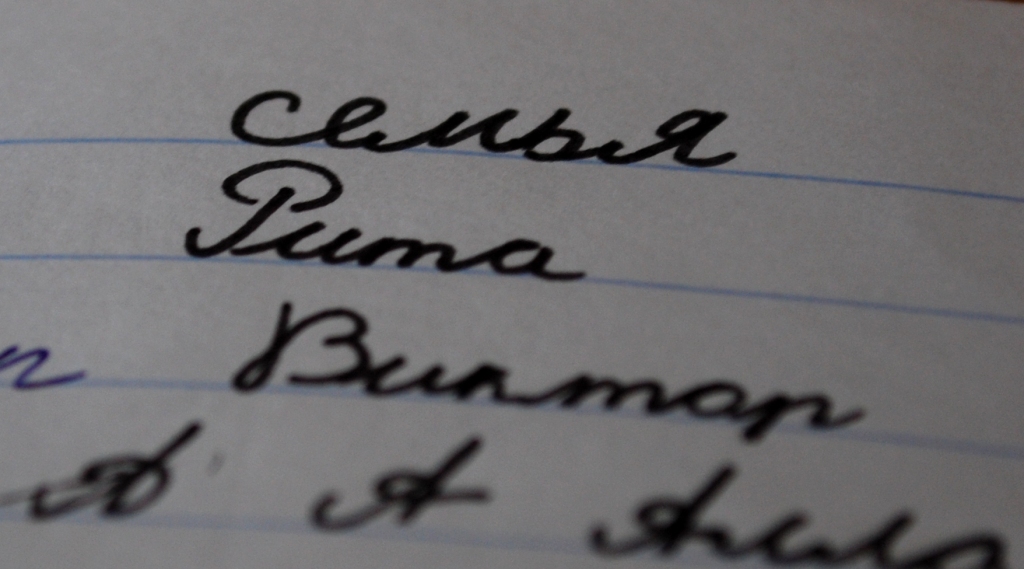 семья
Рита
Виктор
А А Алла